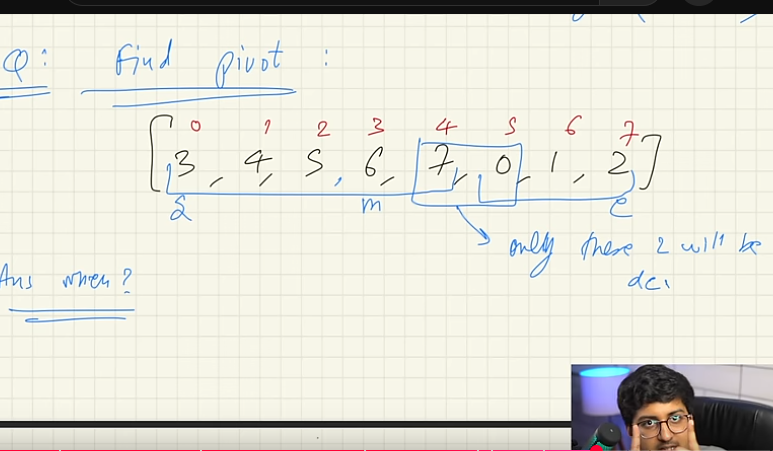 Q: Find pivot :
0 1 2 3 4 5 6 7
[3, 4, 5, 6, 7, 0, 1, 2]
S m e
only these 2 will be
dci
Ans when?